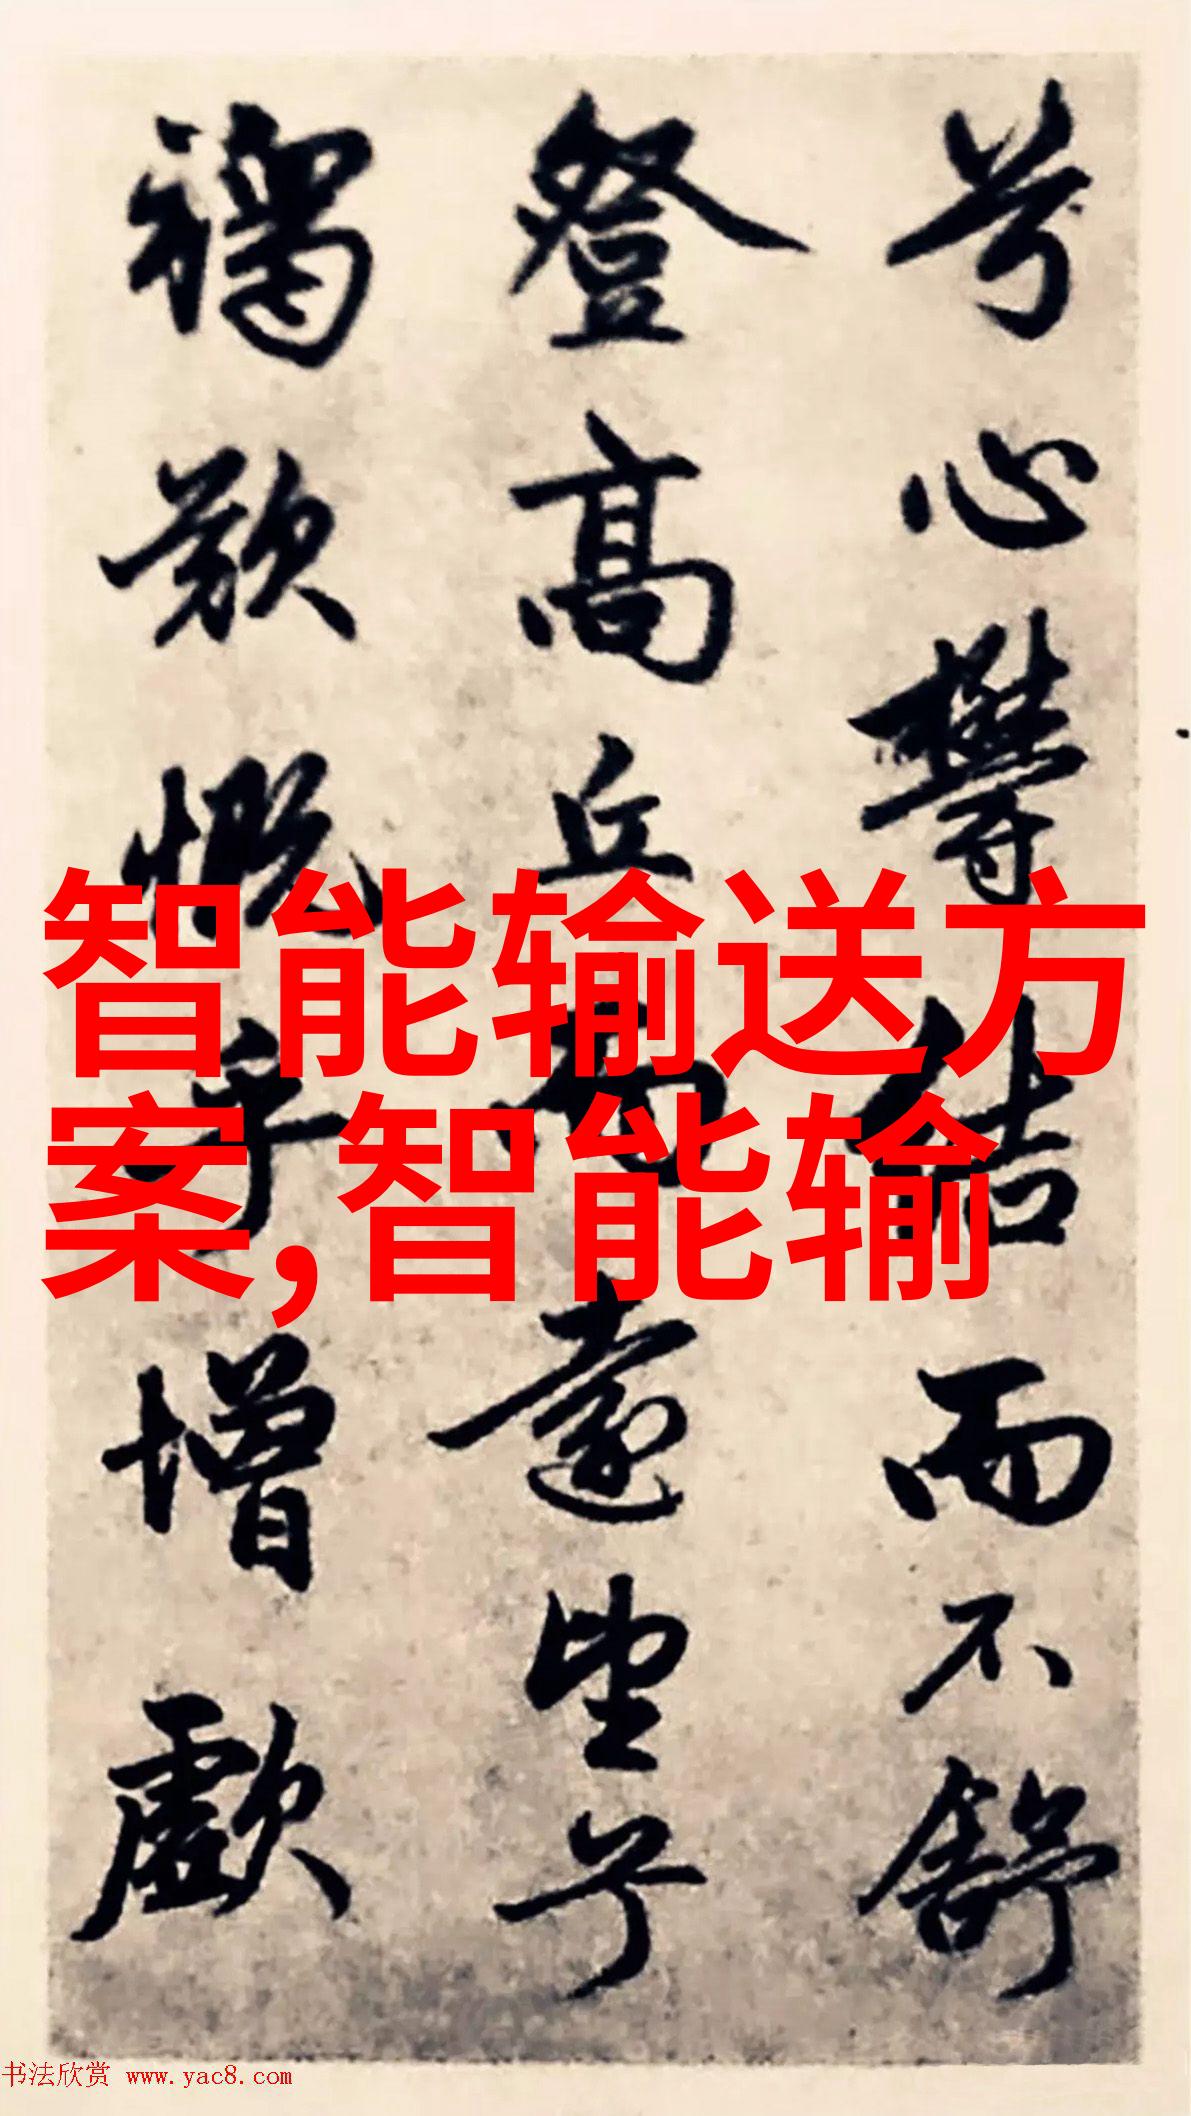 兮心欝結而不舒
登高丘而遠望兮
褐欵慨乎增歔
智能输送方
案,智能输
书法欣赏 www.yac8.com